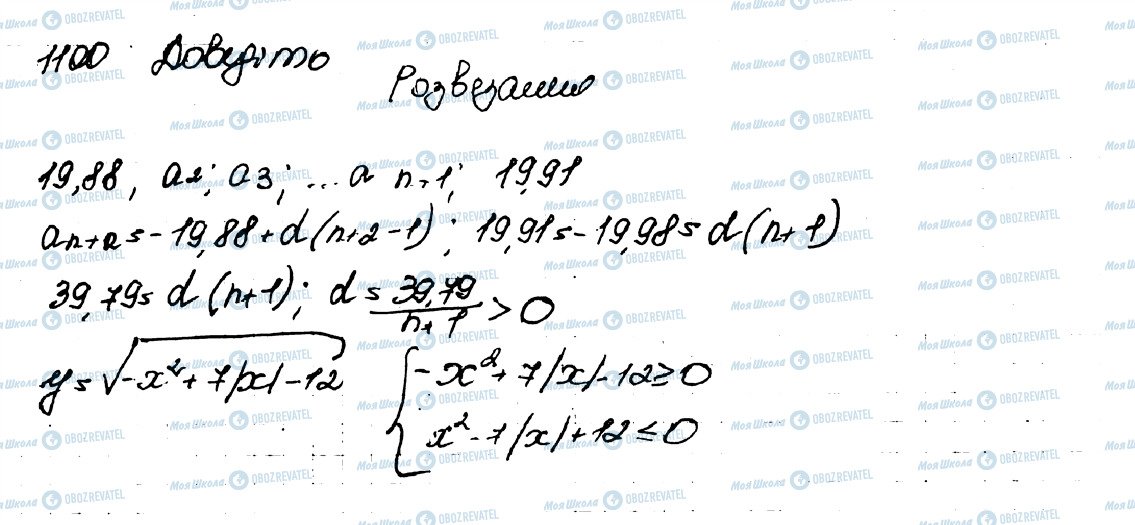 1100 Доведіть
Розвезання
19,88, a2; a3; ... a n-1; 19,91
an+2 = -19,88 + d(n+2-1); 19,91 = -19,98 = d(n+1)
39,79 = d(n+1); d = 39,79/n+1 > 0
y = √-x²+7|x|-12 { -x²+7|x|-12 ≥ 0
x²-7|x|+12 ≤ 0
Моя Школа OBOZREVATEL